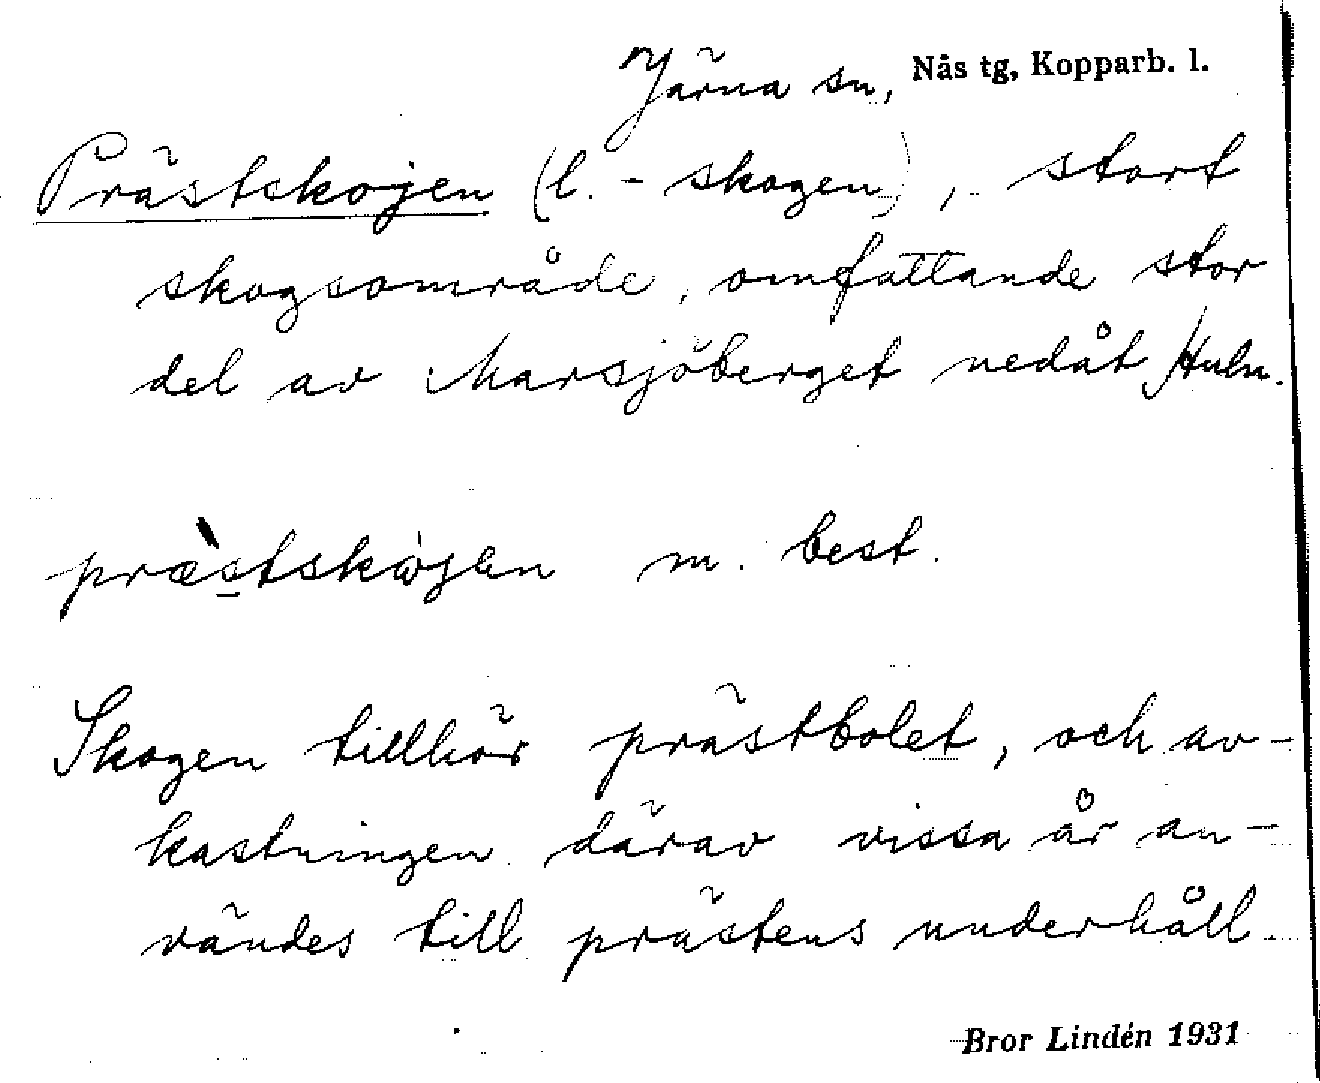 Järna sn, Nås tg, Kopparb. l.
Prästskojen (l. - skogen), stort
skogsområde, omfattande stor
del av Marsjöberget nedåt
præ̀stskòjen m. best.
Skogen tillhör prästbolet, och av-
kastningen därav vissa år an-
vändes till prästens underhåll.
Bror Lindén 1931